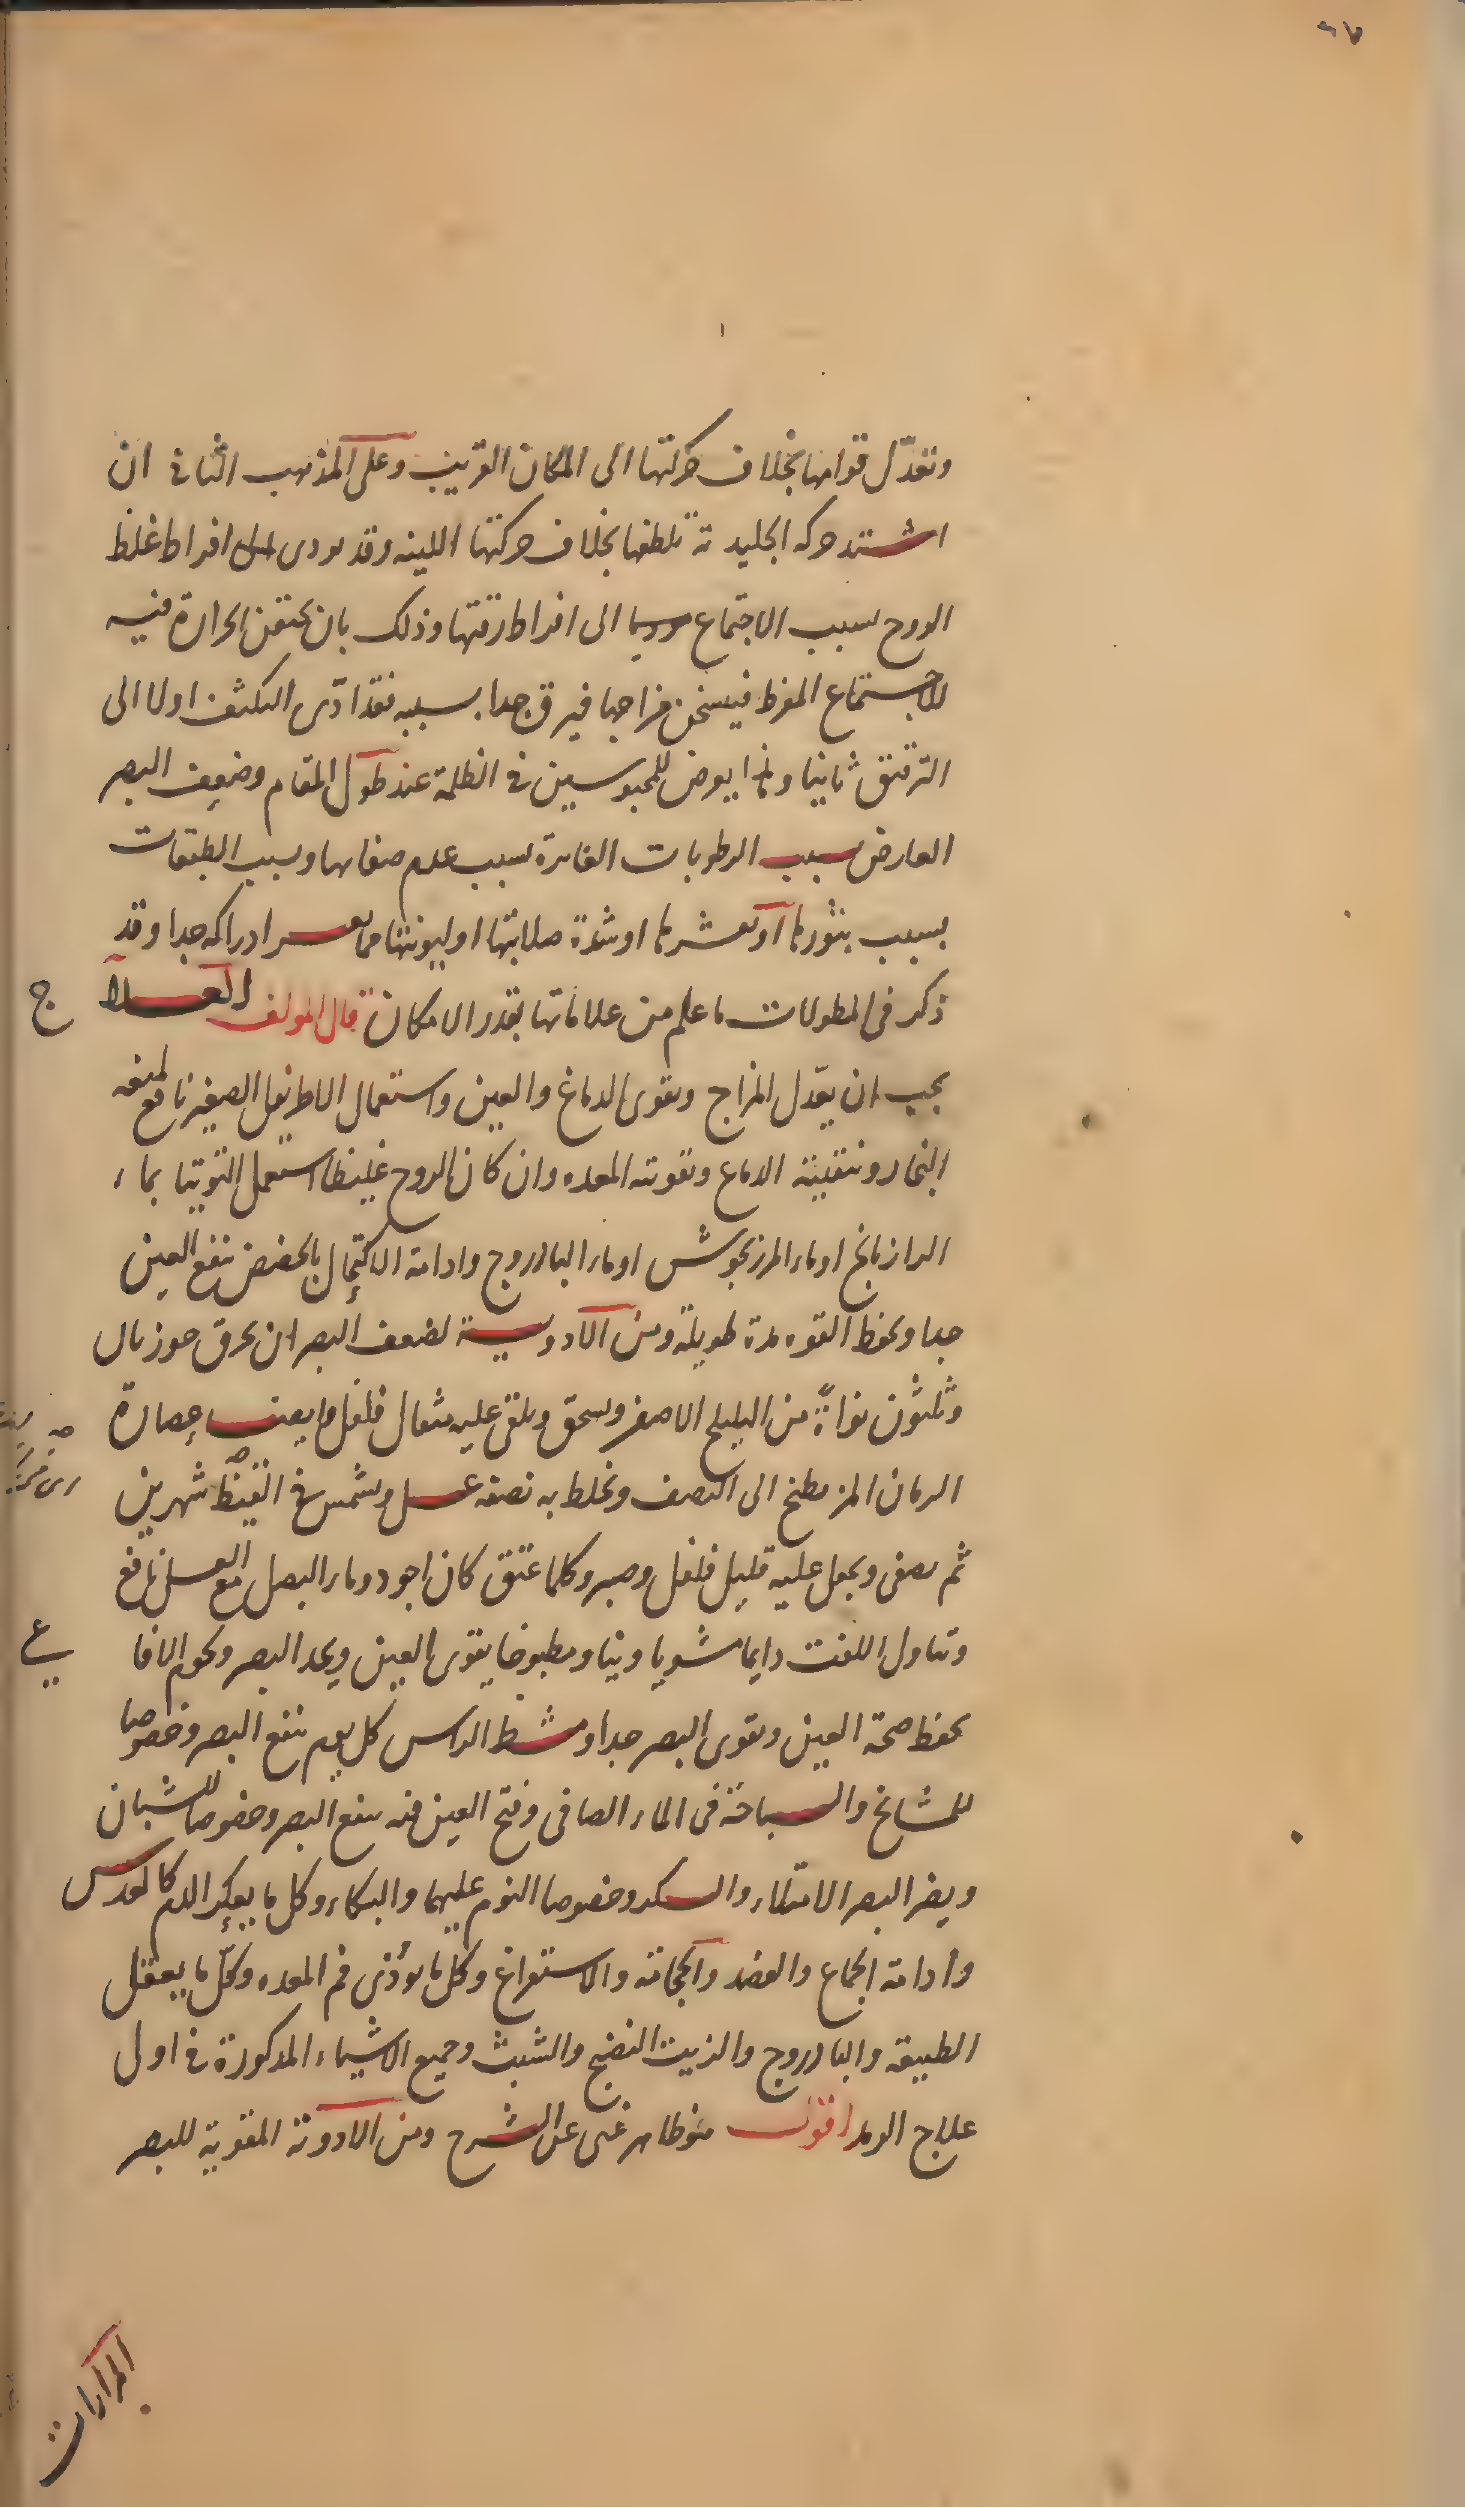 ٦٧
وتعدّل قوامها بخلاف حركتها الى المكان القريب وعلى المذهب الثانى ان
اشتد حركه الجليدية تلطفها بخلاف حركتها اللينه وقد يودى افراط غلظ
الروح بسبب الاجتماع الى افراط رقتها وذلك بان يحتقن الحرارة فيه
للاجتماع المفرط فيسخن مزاجها فيرق جدا بسببه فقد ادّى التكثف اولا الى
الترقيق ثانيا ولهذا يعرض للمحبوسين فى الظلمة عند طول المقام وضعف البصر
العارض بسبب الرطوبات الغايرة بسبب عدم صفايها وبسبب الطبقات
بسبب بثورها او تقشرها او شدة صلابتها او ليونتها مما يعسر ادراكه جدا وقد
ذكر فى المطولات ما علم من علاماتها بقدر الامكان قال المولف العلا
ج
يجب ان يعدّل المزاج ويقوى الدماغ والعين واستعمال الاطريفل الصغير نافع لمنعه
البخار وتنقيته الدماغ وتقويته المعده وان كان الروح غليظا استعمل التوتيا بماء
الرازيانج او ماء المرزنجوش او ماء البادروج وادامة الاكتحال بالحضض ينفع العين
جدا ويحفظ القوه مدة طويلة ومن الادوية لضعف البصر ان يحرق جوزتان
وثلثون نواةً من الهليلج الاصفر ويسحق ويلقى عليه مثقال فلفل وايضا عصارة
الرمان المز يطبخ الى النصف ويخلط به نصفه عسل ويشمس فى القيظ شهرين
ثم يصفى ويجعل عليه قليل فلفل وصبر وكلما عتق كان اجود وماء البصل مع العسل نافع
وتناول اللفت دايما مشويا ونيا ومطبوخا يقوى العين ويحد البصر ولحوم الافا
عى
يحفظ صحة العين ويقوى البصر جدا ومشط الراس كل يوم ينفع البصر وخصوصا
للمشايخ والسباحة فى الماء الصافى وفتح العين فيه ينفع البصر وخصوصا للشبان
ويضر البصر الامتلاء والسكر وخصوصا النوم عليهما والبكاء وكل ما يعكر الدم كالعدس
وادامة الجماع والفصد والحجامة والاستفراغ وكل ما يوذى فم المعده وكل ما يعقل
الطبيعة والبادروج والزيت النضيج والشبث وجميع الاشياء المذكورة فى اول
علاج الرمد اقول هو ظاهر غنى عن الشرح ومن الادوية المقوية للبصر
المرارات